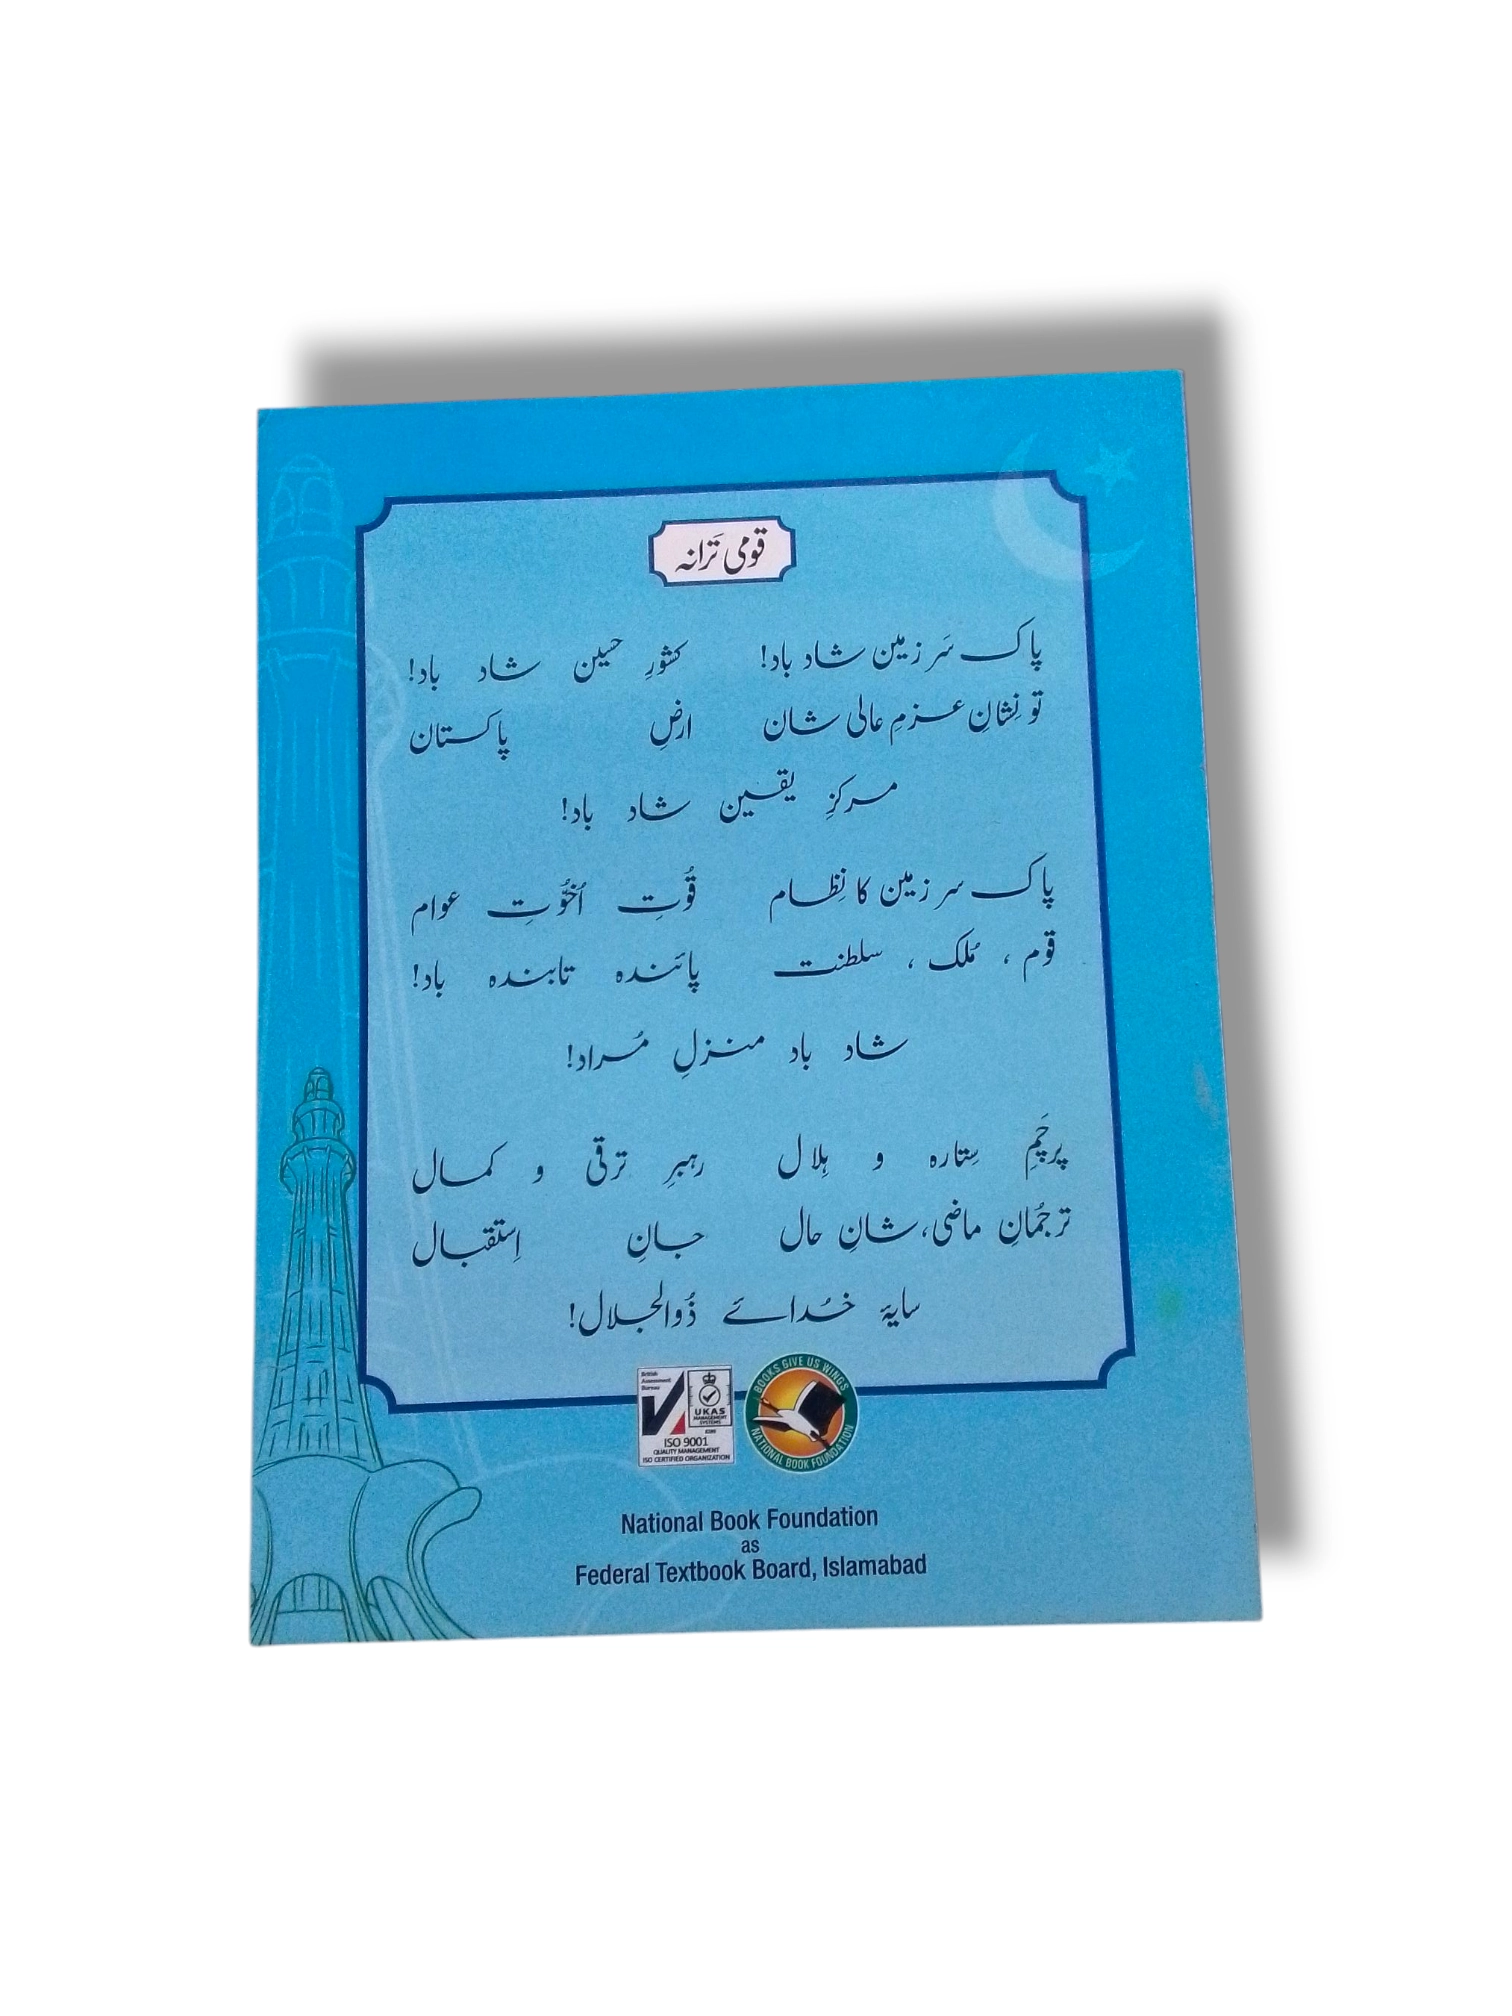 قومی تَرانہ
پاک سَرزمین شاد باد! کشورِ حسین شاد باد!
تو نِشانِ عزمِ عالی شان ارضِ پاکستان
مرکزِ یقین شاد باد!
پاک سرزمین کا نِظام قُوّتِ اُخُوّتِ عوام
قوم ، مُلک ، سلطنت پائندہ تابندہ باد!
شاد باد منزلِ مُراد!
پرچَمِ سِتارہ و ہِلال رہبرِ ترقی و کمال
ترجُمانِ ماضی، شانِ حال جانِ اِستقبال
سایۂ خُدائے ذُوالجلال!
British
Assessment
Bureau
UKAS
MANAGEMENT
SYSTEMS
ISO 9001
QUALITY MANAGEMENT
ISO CERTIFIED ORGANIZATION
BOOKS GIVE US WINGS
NATIONAL BOOK FOUNDATION
National Book Foundation
as
Federal Textbook Board, Islamabad